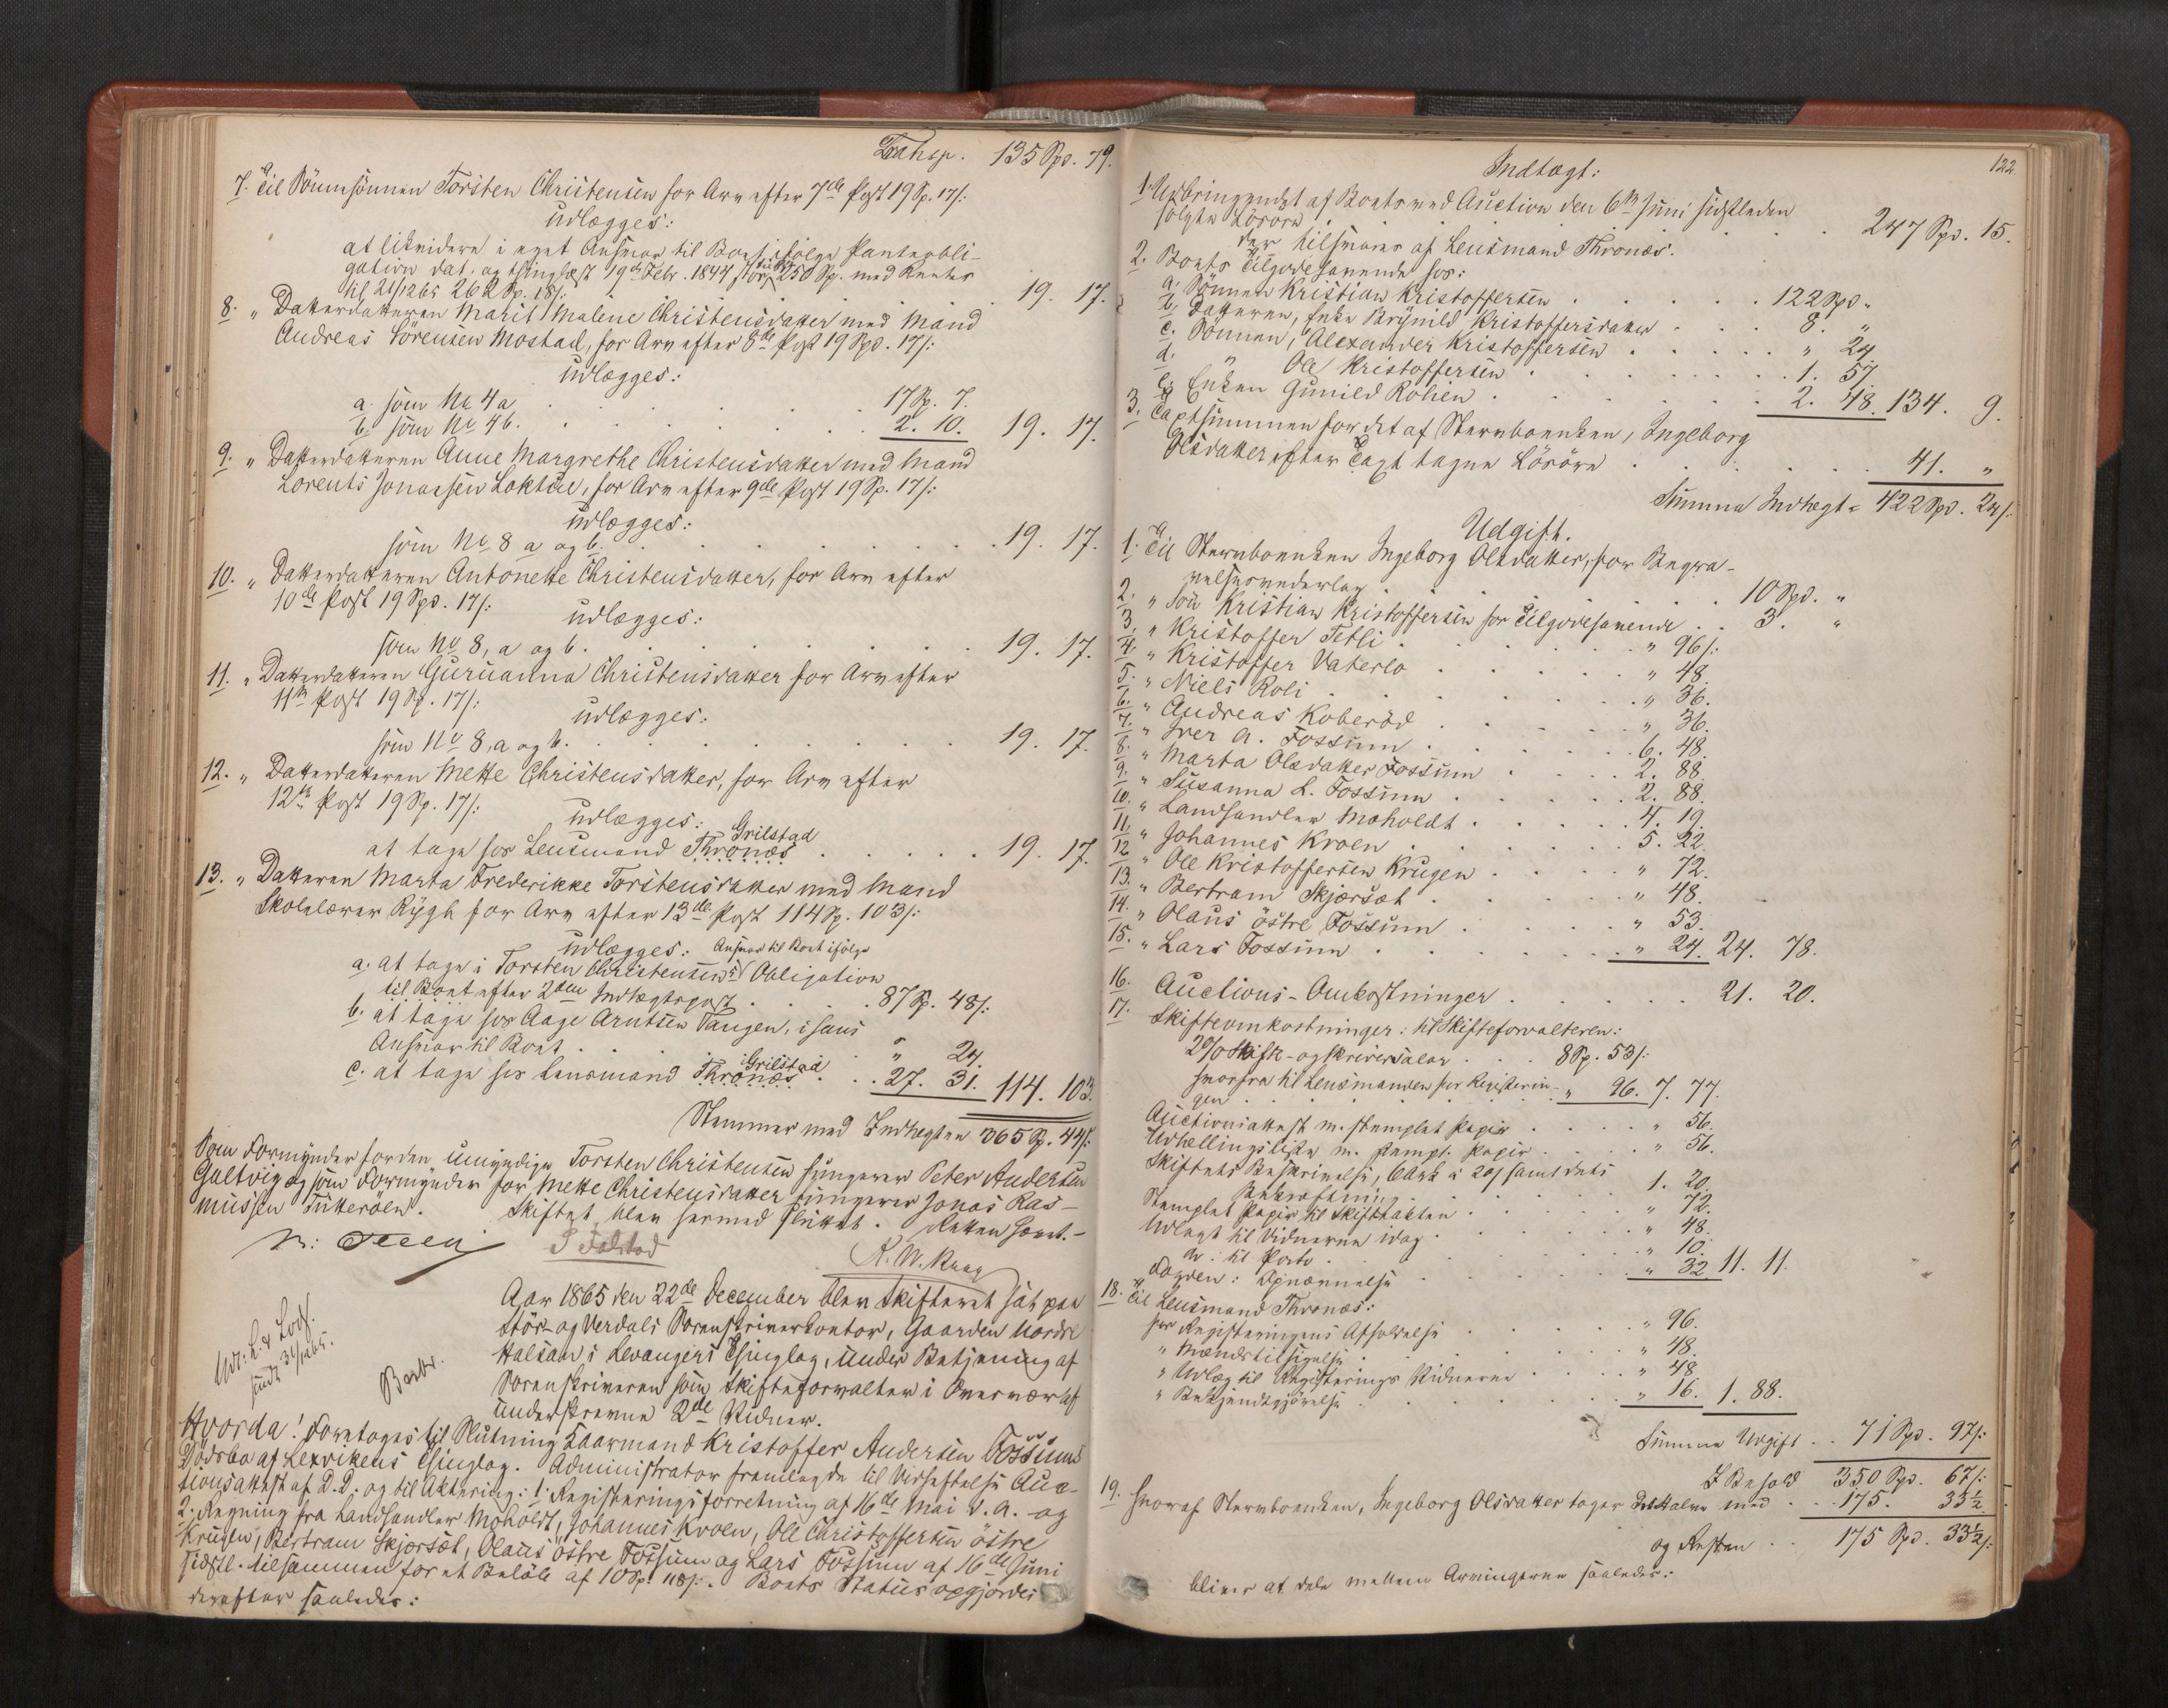 Transp. 135 Spd. 79.
7. Til Sönnesönnen Torsten Christensen for Arv efter 7de Post 19 Sp. 17 s:
udlægges:
at likvidere i eget Ansvar til Boet ifölge Panteobli-
gation dat. og thinglæst 19de Febr. 1844, stor 250 Sp. med Renter
til 21/12 65 262 Sp. 18 s: 19. 17.
8. " Datterdatteren Marit Malene Christensdatter med Mand
Andreas Sörensen Mostad, for Arv efter 8de Post 19 Spd. 17 s:
udlægges:
a. som No 4 a 17 Sp. 7.
b. som No 4 b. 2. 10. 19. 17.
9. " Datterdatteren Anne Margrethe Christensdatter med Mand
Lorents Jonassen Lokten, for Arv efter 9de Post 19 Sp. 17 s:
udlægges:
som No 8 a og b. 19. 17.
10. " Datterdatteren Antonette Christensdatter, for Arv efter
10de Post 19 Spd. 17 s: udlægges:
som No 8, a og b. 19. 17.
11. " Datterdatteren Gurianna Christensdatter for Arv efter
11te Post 19 Sp. 17 s:
udlægges:
som No 8, a og b. 19. 17.
12. " Datterdatteren Mette Christensdatter, for Arv efter
12te Post 19 Sp. 17 s:
udlægges:
Grilstad
at tage hos Lensmand Thronæs 19. 17.
13. " Datteren Marta Frederikke Torstensdatter med Mand
Skolelærer Rygh for Arv efter 13de Post 114 Sp. 103 s:
udlægges: Ansvar til Boet ifölge
a. at tage i Torsten Christensens Obligation
til Boet efter 2den Indtægtspost 87 Sp. 48 s:
b. at tage hos Aage Arntsen Tangen, i hans
Ansvar til Boet " 24.
Grilstad
c. at tage hos Lensmand Thronæs 27. 31. 114. 103.
Stemmer med Indtægten 365 Sp. 44 s:
Som Formynder for den umyndige Torsten Christensen fungerer Peter Andersen
Galtvig og som Formynder for Mette Christensdatter fungerer Jonas Ras-
mussen Tukteröen. Skiftet blev hermed sluttet. Retten hævet. -
S Folstad
Aar 1865 den 22de December blev Skifteret sat paa
Stör- og Verdals Sorenskriverkontor, Gaarden Nordre
Halsan i Levangers Thinglag, under Betjening af
Sorenskriveren som Skifteforvalter i Overvær af
underskrevne 2de Vidner.
Hvorda! Foretoges til Slutning Kaarmand Kristoffer Andersen Fossums
Dödsbo af Lexvikens Thinglag. Administrator fremlagde til Vedheftelse Auc-
tionsattest af D. D. og til Aktering: 1. Registeringsforretning af 16de Mai d. A. og
2. Regning fra Landhandler Moholdt, Johannes Kroen, Ole Christoffersen östre
Krugen, Bertram Skjorsæt, Olaus östre Fossum og Lars Fossum af 16de Juni
sidstl. tilsammen for et Belöb af 10 Sp. 118 s:. Boets Status opgjordes
derefter saaledes:
122.
Indtægt:
1. Udbringendet af Boets ved Auction den 6te Juni sidstleden
solgte Lösöre 247 Spd. 15.
der tilsvares af Lensmand Thronæs.
2. Boets Tilgodehavende hos:
a. Sönnen Kristian Kristoffersen 122 Spd. "
b. Datteren, Enke Brynild Kristoffersdatter 8. "
c. Sönnen, Alexander Kristoffersen " 24.
d. " Ole Kristoffersen 1. 57.
e. Enken Gunild Rolien 2. 48. 134. 9.
3. Taxtsummen for det af Stervboenken, Ingeborg
Olsdatter efter Taxt tagne Lösöre 41. "
Summa Indtægt = 422 Spd. 24 s:
Udgift.
1. Til Stervboenken Ingeborg Olsdatter, for Begra-
velsesvederlag 10 Spd. "
2. " Sön Kristian Kristoffersen for Tilgodehavende 3. "
3. " Kristoffer Tetli " 96 s:
4. " Kristoffer Vaterlo " 48.
5. " Niels Roli " 36.
6. " Andreas Koberöd " 36.
7. " Iver A. Fossum 6. 48.
8. " Marta Olsdatter Fossum 2. 88.
9. " Susanna L. Fossum 2. 88.
10. " Landhandler Moholdt 4. 19.
11. " Johannes Kroen 5. 22.
12. " Ole Kristoffersen Krugen " 72.
13. " Bertram Skjærsæt " 48.
14. " Olaus östre Fossum " 53.
15. " Lars Fossum " 24. 24. 78.
16. Auctions-Omkostninger 21. 20.
17. Skifteomkostninger: til Skifteforvalteren:
2 % Skifte- og Skriversalar 8 Sp. 53 s:
hvorfra til Lensmanden for Registerin-
gen " 96. 7. 77.
Auctionsattest m. stemplet Papir " 56.
Udtellingslisten m. stempl. Papir " 56.
Skiftets Beskrivelse, 6 Ark à 20 s samt dets
Bekræftning 1. 20.
Stemplet Papir til Skifteakten " 72.
Udlagt til Vidnerne idag " 48.
do : til Porto " 10.
Fogden: Opnævnelse " 32. 11. 11.
18. Til Lensmand Thronæs:
for Registeringens Afholdelse " 96.
" Mændstilsigelse " 48.
" Udlæg til Registerings Vidnerne " 48.
" Bekjendtgjörelse " 16. 1. 88.
Summa Udgift 71 Spd. 97 s:
I Behold 350 Spd. 67 s:
19. hvoraf Stervboenken, Ingeborg Olsdatter tager det Halve med 175. 33½
og Resten 175 Spd. 33½ s:
bliver at dele mellem Arvingerne saaledes: